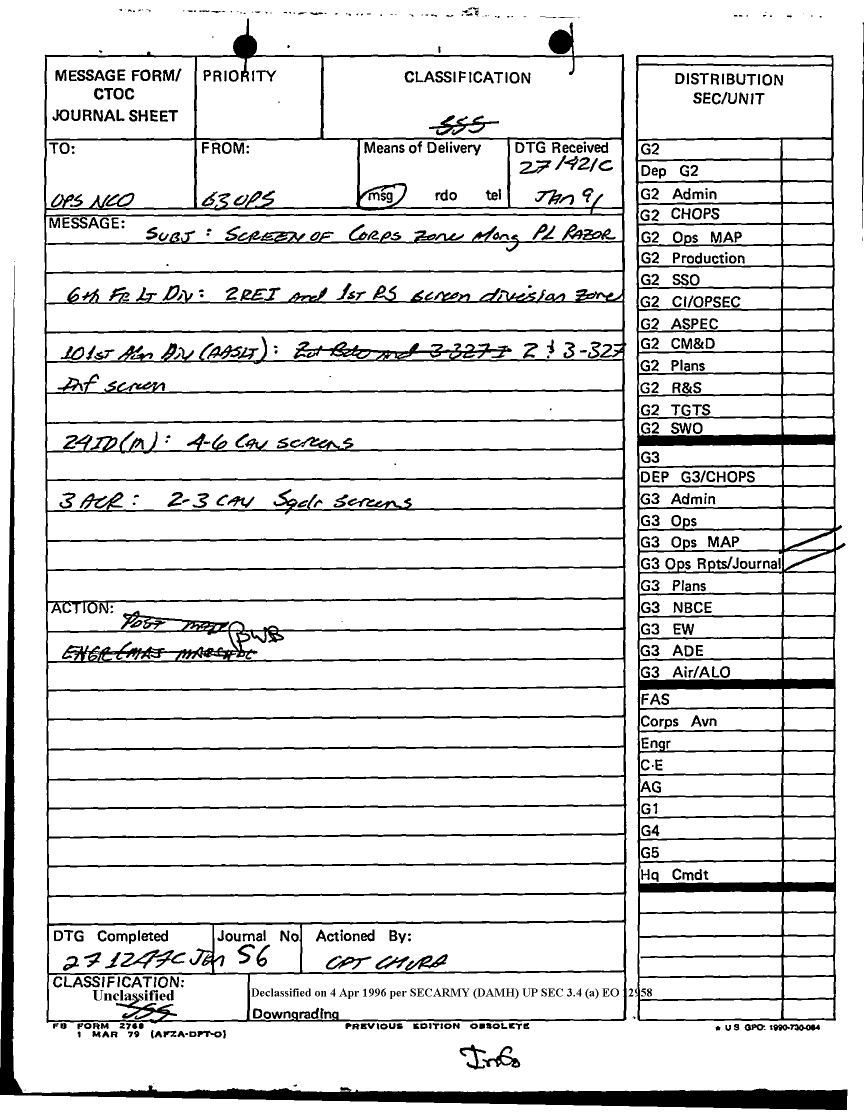 MESSAGE FORM/
CTOC
JOURNAL SHEET
PRIORITY
CLASSIFICATION
TO:
OPS NCO
FROM:
G3 OPS
Means of Delivery
msg rdo tel
DTG Received
271421C
JAN 91
MESSAGE:
SUBJ : SCREEN OF CORPS ZONE Along PL RAZOR
6th FR LT DIV: 2REI and 1ST RS screen division zone
101st Abn Div (AASLT): 2d Bde and 3-327 I 2 & 3-327
Inf screen
24ID(M): 4-6 CAV screens
3 ACR: 2-3 CAV Sqdr screens
ACTION:
POST MAP
BWB
DTG Completed
271247C Jan
Journal No.
56
Actioned By:
CPT CHURA
CLASSIFICATION:
Unclassified
Declassified on 4 Apr 1996 per SECARMY (DAMH) UP SEC 3.4 (a) EO 12958
Downgrading
FB FORM 2768
1 MAR 79 (AFZA-DPT-O)
PREVIOUS EDITION OBSOLETE
★ U S GPO: 1990-730-084
Info
DISTRIBUTION
SEC/UNIT
G2
Dep G2
G2 Admin
G2 CHOPS
G2 Ops MAP
G2 Production
G2 SSO
G2 CI/OPSEC
G2 ASPEC
G2 CM&D
G2 Plans
G2 R&S
G2 TGTS
G2 SWO
G3
DEP G3/CHOPS
G3 Admin
G3 Ops
G3 Ops MAP
G3 Ops Rpts/Journal
G3 Plans
G3 NBCE
G3 EW
G3 ADE
G3 Air/ALO
FAS
Corps Avn
Engr
C-E
AG
G1
G4
G5
Hq Cmdt